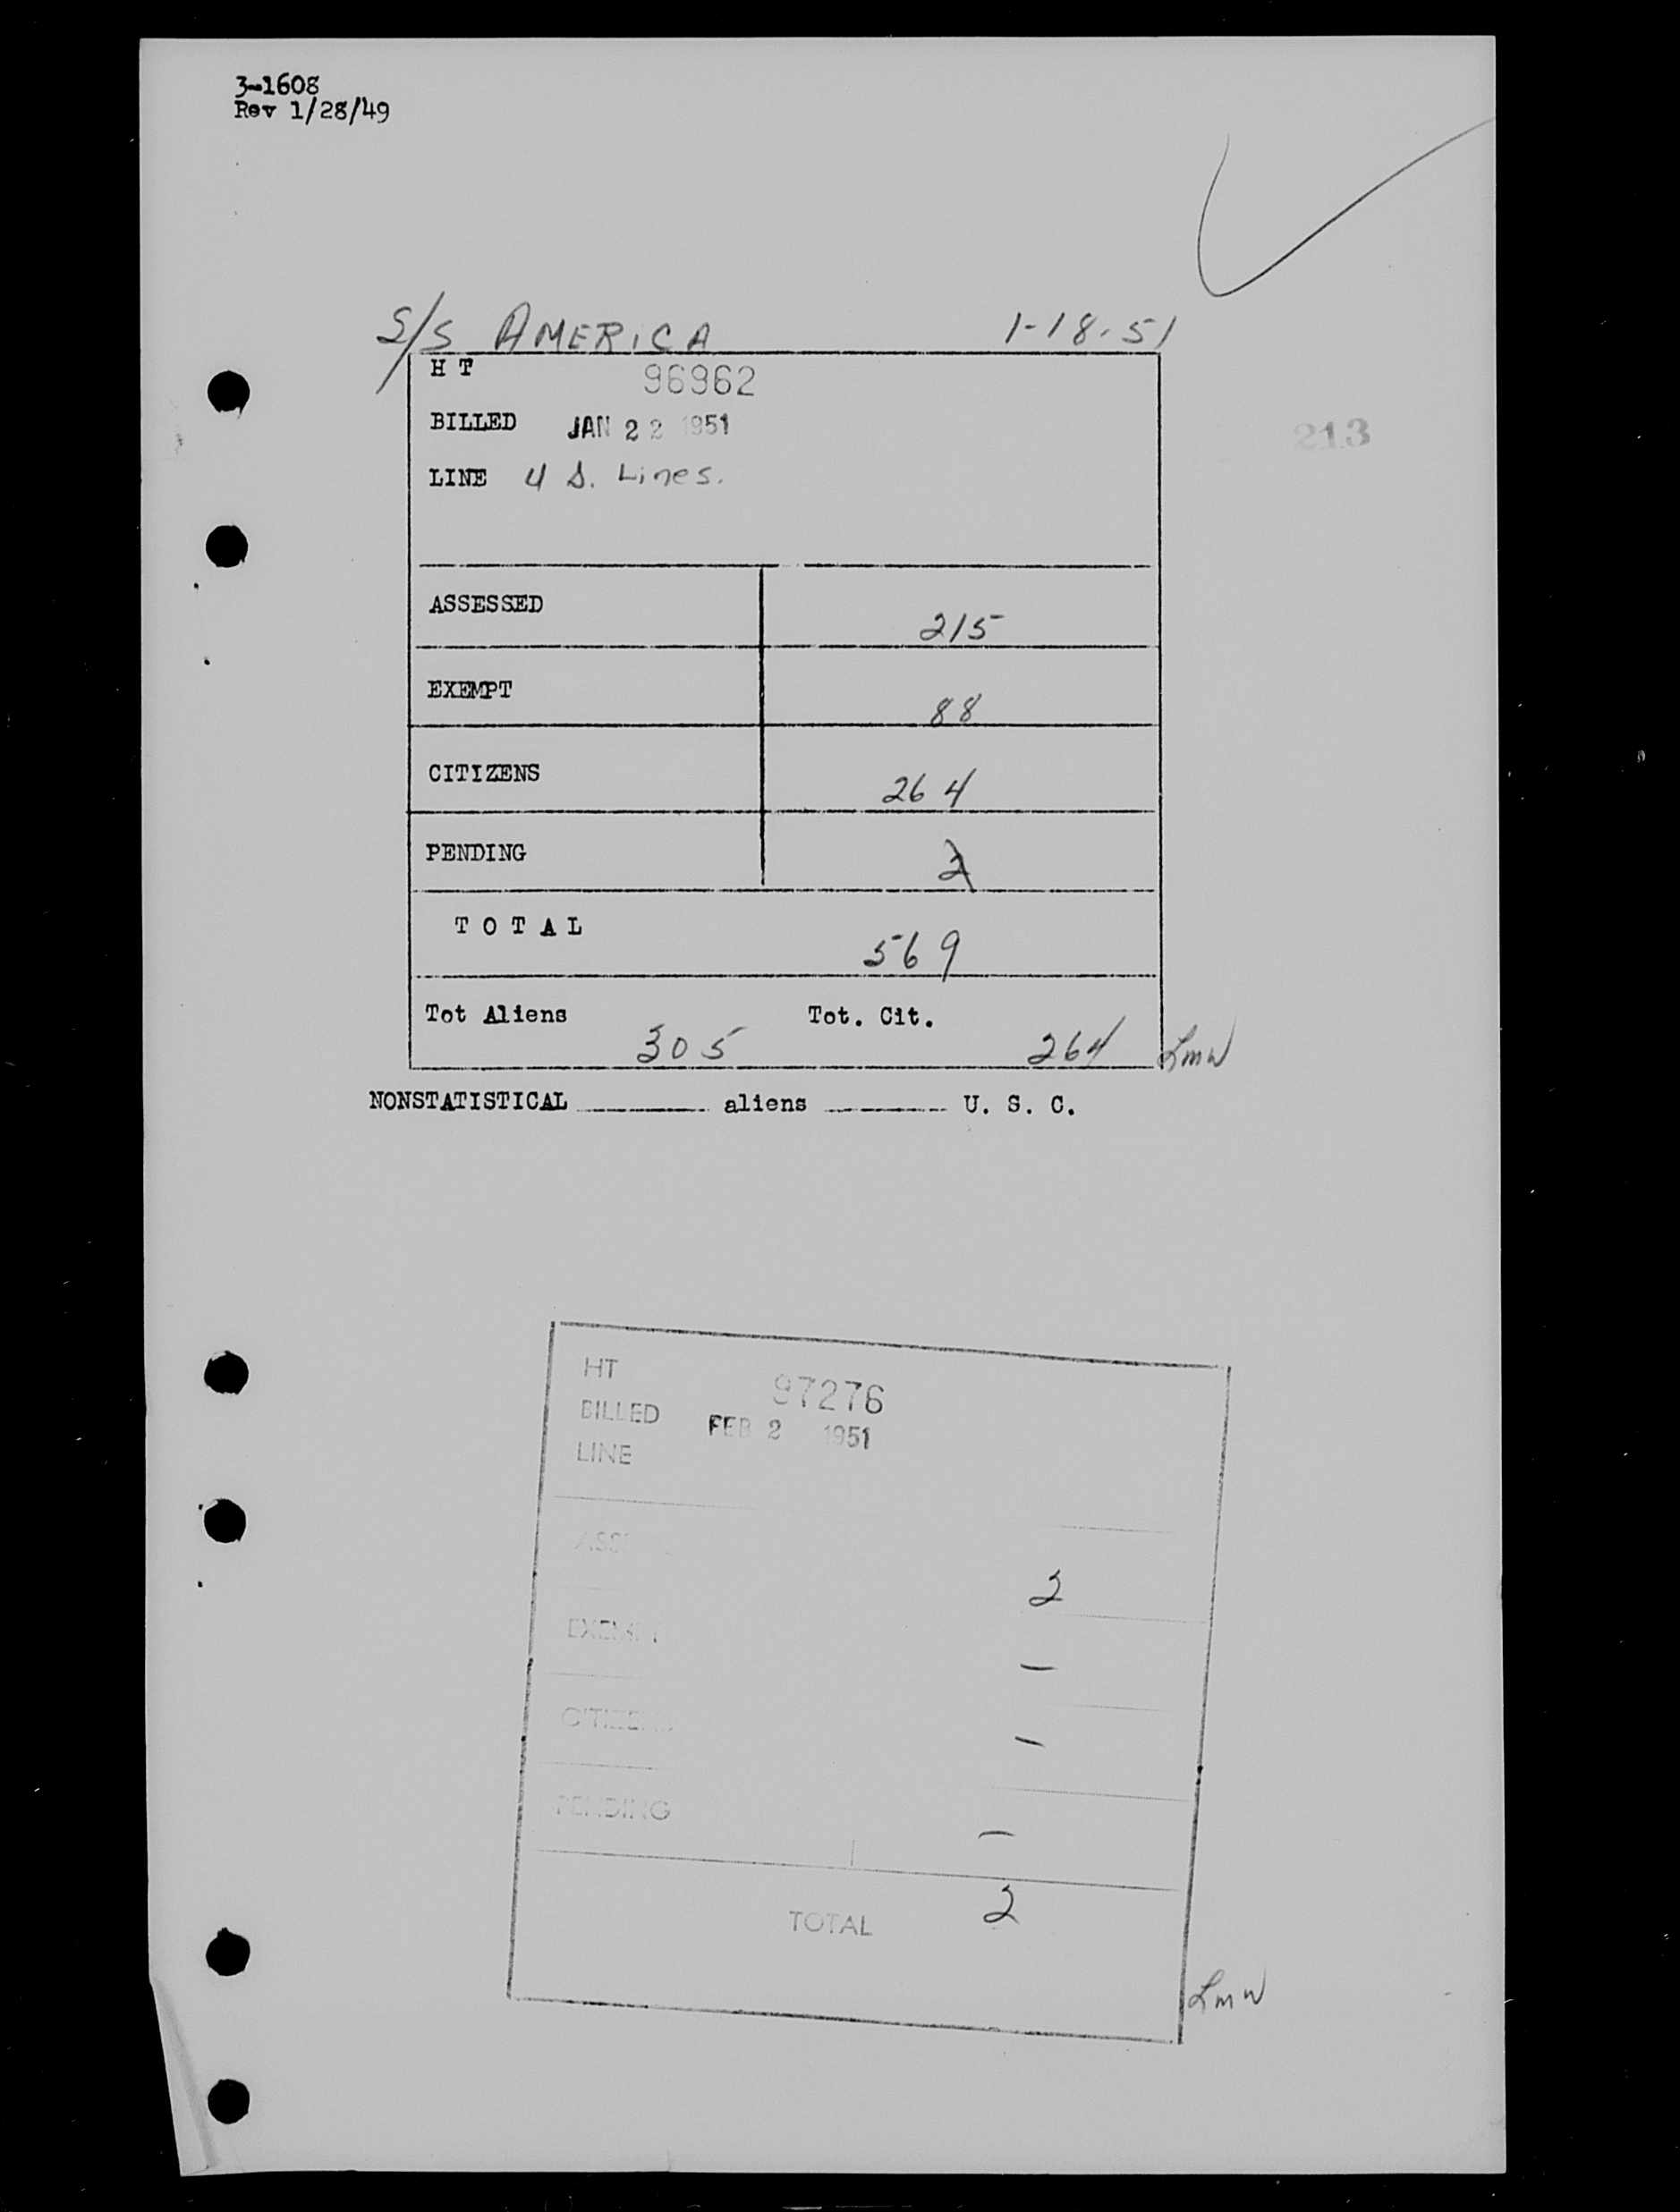 3-1608
Rev 1/28/49
S/S AMERICA 1-18-51
H T 96962
213
BILLED JAN 22 1951
LINE U S. Lines.
ASSESSED 215
EXEMPT 88
CITIZENS 264
PENDING 2
T O T A L 569
Tot Aliens 305 Tot. Cit. 264 Lmw
NONSTATISTICAL ______ aliens ______ U. S. C.
HT 97276
BILLED FEB 2 1951
LINE
2
EXEMPT -
CITIZENS -
PENDING -
TOTAL 2
Lmw